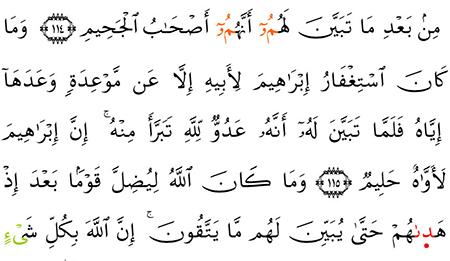 مِنۢ بَعْدِ مَا تَبَيَّنَ لَهُمُۥٓ أَنَّهُمُۥٓ أَصْحَٰبُ الْجَحِيمِ ۝١١٤ وَمَا
كَانَ اَسْتِغْفَارُ إِبْرَٰهِيمَ لِأَبِيهِ إِلَّا عَن مَّوْعِدَةٍ وَعَدَهَا
إِيَّاهُ فَلَمَّا تَبَيَّنَ لَهُۥٓ أَنَّهُۥ عَدُوٌّ لِّلَّهِ تَبَرَّأَ مِنْهُ ۚ إِنَّ إِبْرَٰهِيمَ
لَأَوَّٰهٌ حَلِيمٌ ۝١١٥ وَمَا كَانَ اَللَّهُ لِيُضِلَّ قَوْمًۢا بَعْدَ إِذْ
هَدٜىٰهُمْ حَتَّىٰ يُبَيِّنَ لَهُم مَّا يَتَّقُونَ ۚ إِنَّ اَللَّهَ بِكُلِّ شَےْءٍ